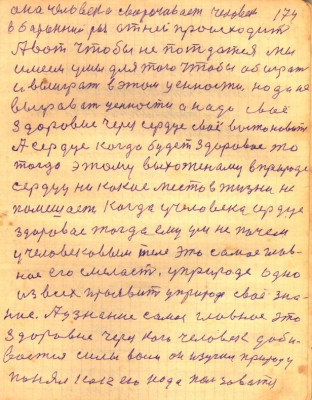 она человека сворочавает человек 174
в баранний рог от ней происходит
А вот чтобы не потдатся мы
имеем умы для того чтобы обиграт
и выиграт в этом ценности, но да не
выграват ценности а надо своё
здоровие через сердце своё востоновить
А сердце когда будет здоровае то
тогда этому выхоженаму в природе
сердцу ни какое место в жизни не
помешает. Когда у человека сердце
здоровае тогда ему ум не почем
у человековым теле это самое глав-
ное его смеласт. у природе одно
из всех проявит у природе своё зна-
ние. А знание самое главное это
здоровие через кого человек доби-
вается силы воли он изучил природу
понял как его нада пользоваты